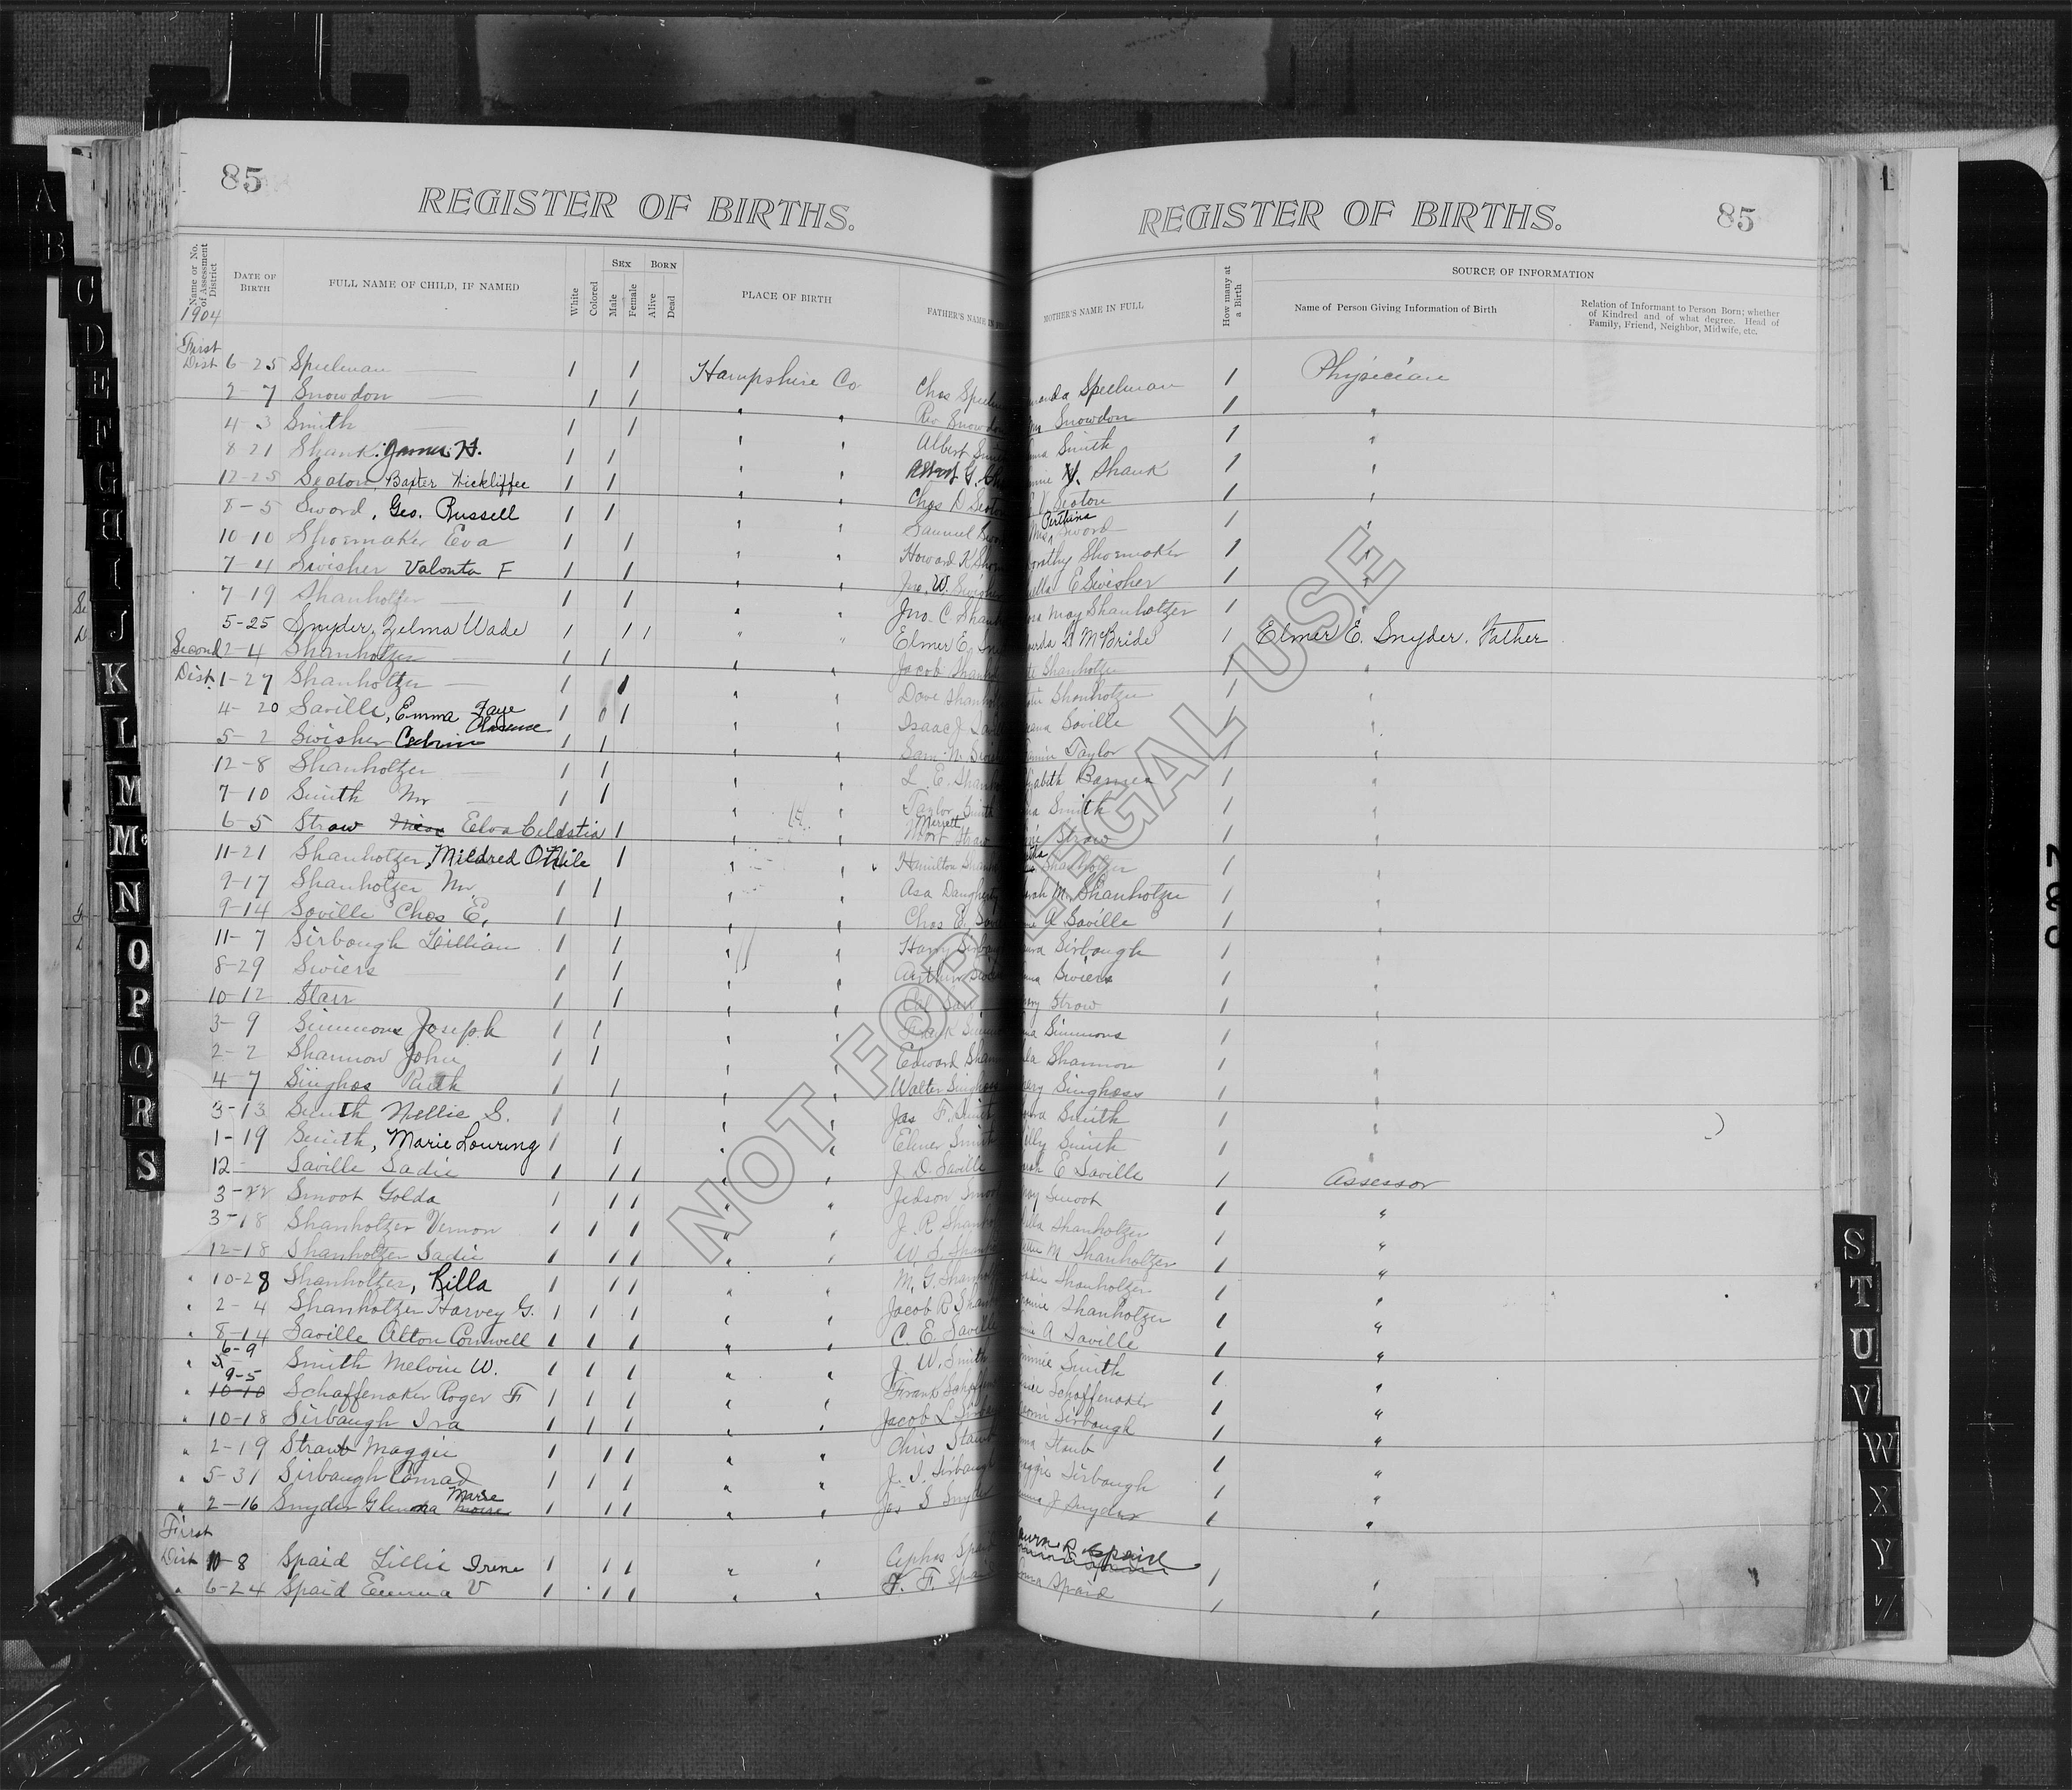 85
REGISTER OF BIRTHS.
REGISTER OF BIRTHS.
85
Name or No. of Assessment District
1904
DATE OF BIRTH
FULL NAME OF CHILD, IF NAMED
White
Colored
SEX
Male
Female
BORN
Alive
Dead
PLACE OF BIRTH
FATHER'S NAME IN
MOTHER'S NAME IN FULL
How many at a Birth
SOURCE OF INFORMATION
Name of Person Giving Information of Birth
Relation of Informant to Person Born; whether of Kindred and of what degree. Head of Family, Friend, Neighbor, Midwife, etc.
First
Dist 6-25 Speelman 1 1 Hampshire Co Chas Speelm manda Speelman 1 Physician
2-7 Snowdon 1 1 " " Rev Snowdon Snowdon 1 "
4-3 Smith 1 1 " " Albert Smi Smith 1 "
8-21 Shank James H. 1 1 " " G. Shank 1 "
12-25 Seaton, Baxter Hickliffee 1 1 " " Chas D Seato Seaton 1 "
8-5 Sword, Geo. Russell 1 1 " " Samuel Swor Mrs Perthina Sword 1 "
10-10 Shoemaker Eva 1 1 " " Howard K Shoem orothy Shoemaker 1 "
7-4 Swisher Valonta F 1 1 " " Jno. W. Swisher ella E Swisher 1 "
7-19 Shanholtzer 1 1 " " Jno. C Shanh May Shanholtzer 1
5-25 Snyder, Zelma Wade 1 1 1 " " Elmer E. Sny McBride 1 Elmer E. Snyder. Father
Second 2-4 Shanholtzer 1 1 " " Jacob Shanh Shanholtzer 1 "
Dist. 1-27 Shanholtzer 1 1 " " Dove Shanhol Shanholtzer 1 "
4-20 Saville, Emma Faye 1 0 1 " " Isaac J Savil Saville 1 "
5-2 Swisher Clarence 1 1 " " Sam. N. Swish Taylor 1 "
12-8 Shanholtzer 1 1 " " L. E. Shanh zabith Barnes 1 "
7-10 Smith Mr 1 1 " " Taylor Smith Smith 1 "
6-5 Straw Elva Celdstia 1 " " Merrett Straw Straw 1 "
11-21 Shanholtzer, Mildred O'Neile 1 " " Hamilton Shanh Shanholtzer 1 "
9-17 Shanholtzer Mr 1 1 " " Asa Daugherty arah M. Shanholtzer 1 "
9-14 Saville Chas E, 1 1 " " Chas E. Savi A Saville 1 "
11-7 Sirbough Lillian 1 1 " " Harry Sirbou Sirbough 1 "
8-29 Swiers 1 1 " " Arthur Swie Swiers 1 "
10-12 Starr 1 1 " " Cal Starr Straw 1 "
3-9 Simmons Joseph 1 1 " " Frank Simmo Simmons 1 "
2-2 Shannon John 1 1 " " Edward Shann Shannon 1 "
4-7 Singhas Ruth 1 1 " " Walter Singhass ary Singhass 1 "
3-13 Smith Nellie S. 1 1 " " Jas F. Smith Smith 1 "
1-19 Smith, Marie Louring 1 1 " " Elmer Smith illy Smith 1 "
12- Saville Sadie 1 1 1 " " J. D. Saville arah E Saville 1 Assessor
3-22 Smoot Golda 1 1 1 " " Judson Smoot may Smoot 1 "
3-18 Shanholtzer Vernon 1 1 1 " " J. R Shanho illa Shanholtzer 1 "
12-18 Shanholtzer Sadie 1 1 1 " " W. S. Shanh M Shanholtzer 1 "
" 10-28 Shanholtzer, Rilla 1 1 1 " " M. G. Shanhol Shanholtzer 1 "
" 2-4 Shanholtzer Harvey G. 1 1 1 " " Jacob R Shanh Shanholtzer 1 "
" 8-14 Saville Alton Cornwell 1 1 1 " " C. E. Saville A Saville 1 "
" 6-9 Smith Melvin W. 1 1 1 " " J. W. Smith innie Smith 1 "
9-5
" 10-10 Schaffenaker Roger F 1 1 1 " " Frank Schaffen Schaffenaker 1 "
" 10-18 Sirbaugh Ira 1 1 1 " " Jacob L Sirbau aomi Sirbaugh 1 "
" 2-19 Straub Maggie 1 1 1 " " Chris Staub Staub 1 "
" 5-31 Sirbaugh Conrad 1 1 1 " " J. I. Sirbaugh aggie Sirbaugh 1 "
" 2-16 Snyder Glenna Marie 1 1 1 " " Jas S Snyder J Snyder 1 "
First
Dist 10-8 Spaid Lillie Irene 1 1 1 " " Cephas Spaid Laura R Spaid 1 "
" 6-24 Spaid Emma V 1 1 1 " " F. F. Spaid Spaid 1 "
NOT FOR LEGAL USE
A
B
C
D
E
F
G
H
I
J
K
L
M
Mc
N
O
P
Q
R
S
S
T
U
V
W
X
Y
Z